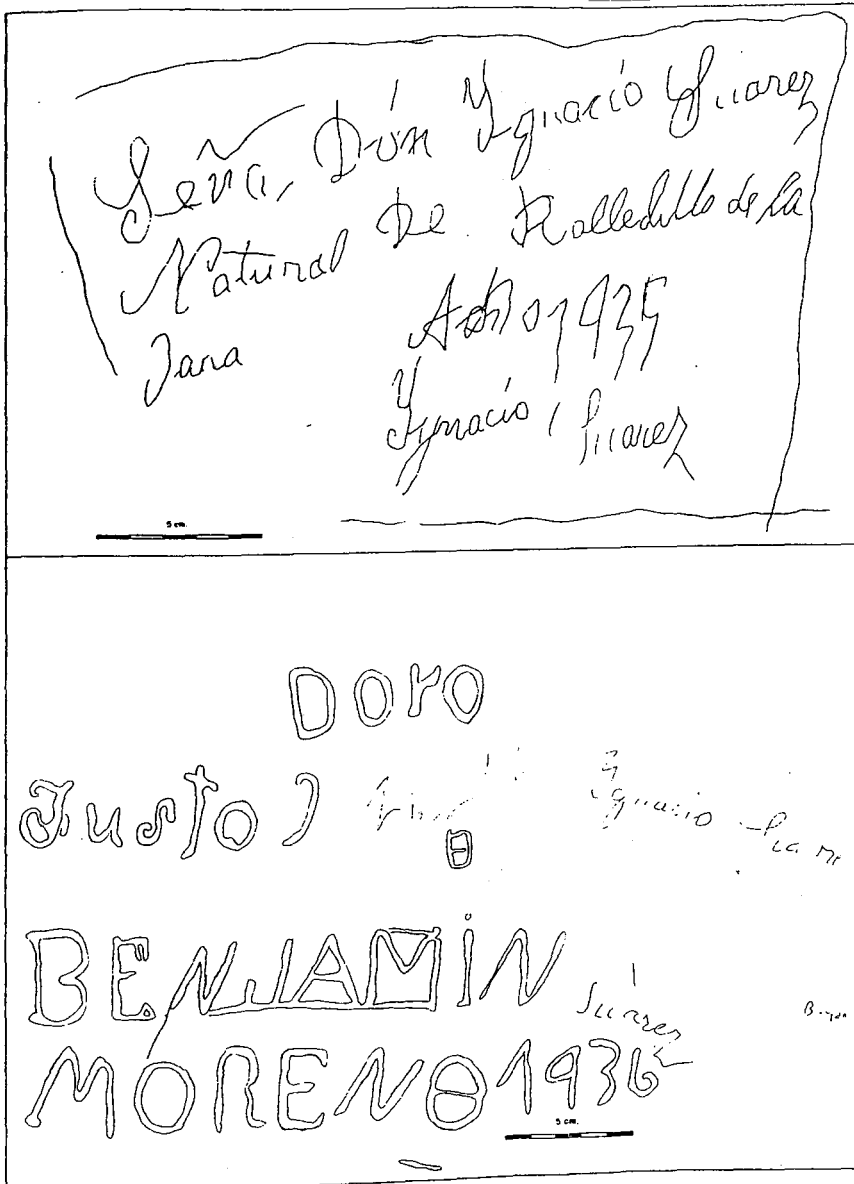 Seña, Dón Ygnacio Suarez
Natural De Rolledillo de la
Jara Año 1935
Ygnacio Suarez
5 cm.
DOrO
Justo J
Ygnacio
BENJAMİN
Suarez
MÓRENO 1936
5 cm.